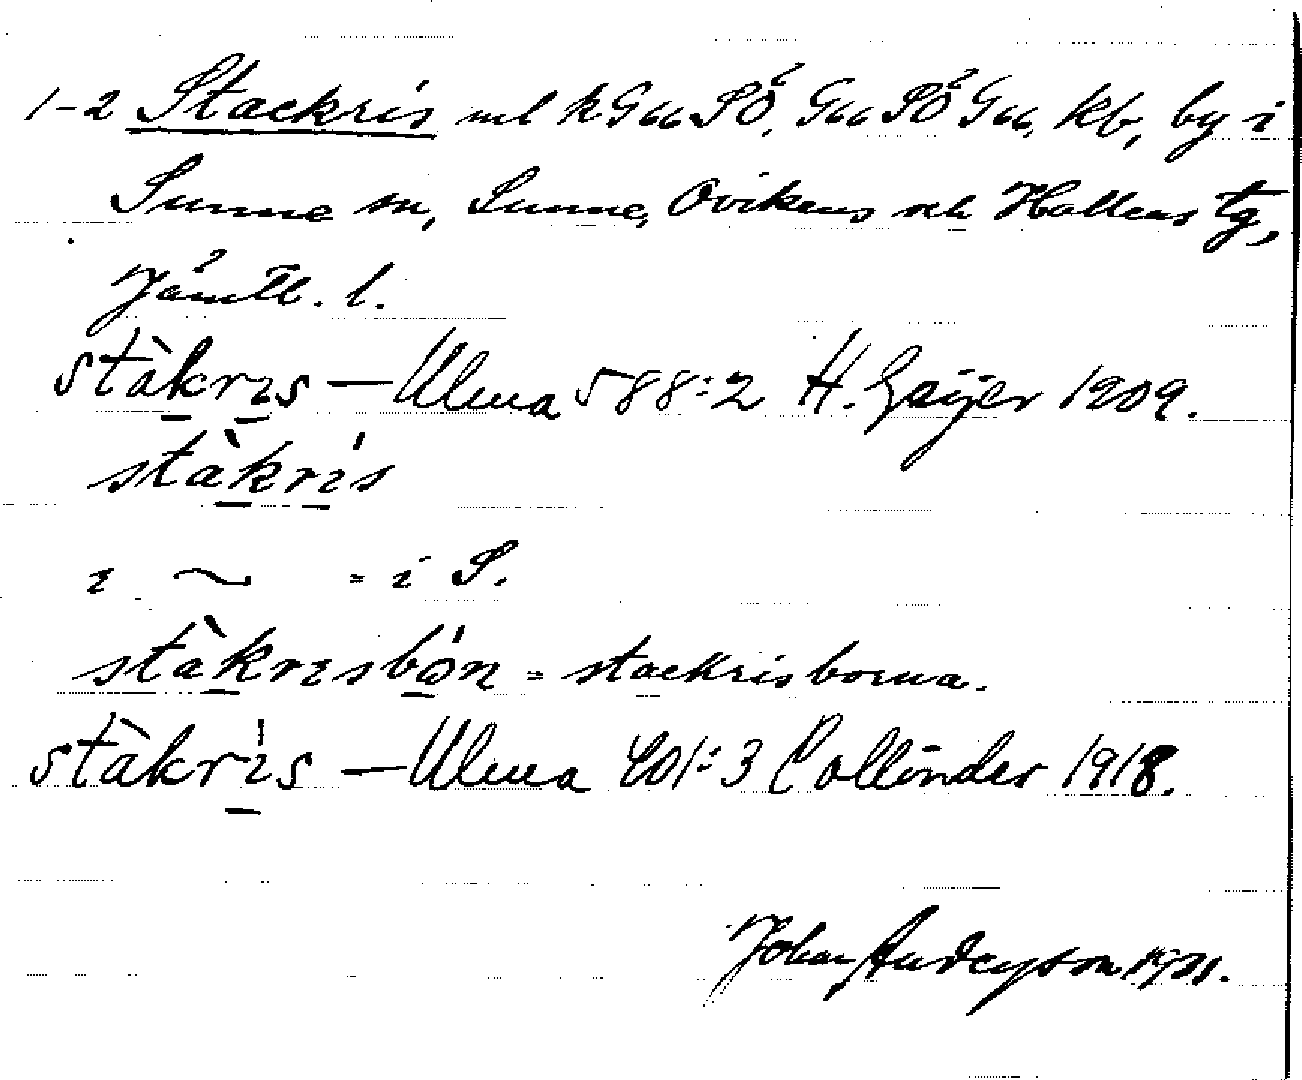 1-2 Stackris ml k Guu SÖ, Guu SÖ Guu, kb, by i
Sunne sn, Sunne, Ovikens och Hallens tg,
Jämtl. l.
stàkrıs — Ulma 588:2 H. Geijer 1909.
stàkrís
ı ~ = i S.
stàkrısbón = stackrisborna.
stàkrís — Ulma 401:3 Collinder 1918.
Johan Anderson